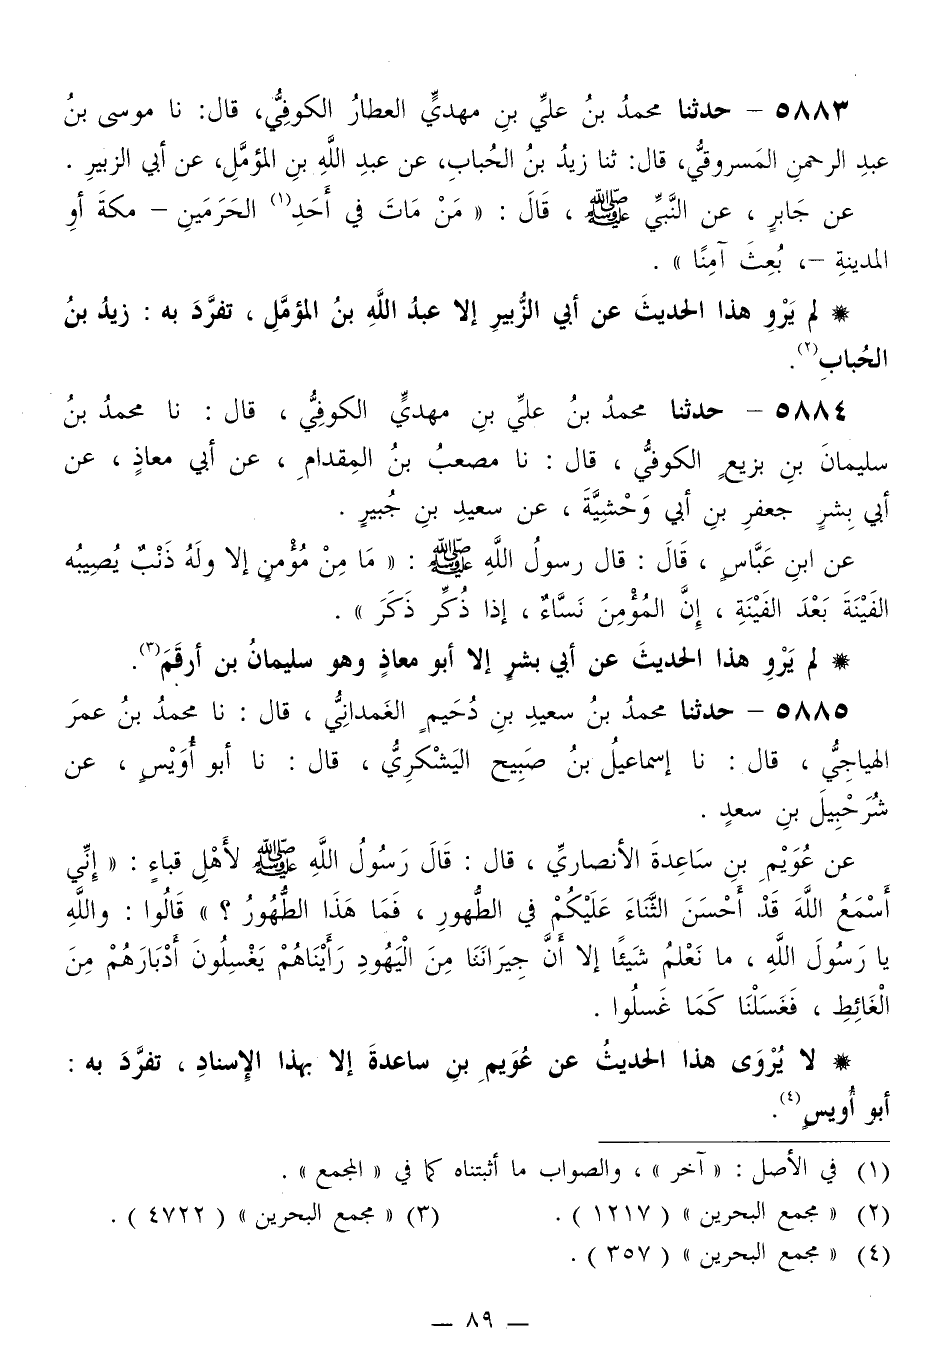 ٥٨٨٣ – حدثنا محمدُ بنُ عليِّ بنِ مهديٍّ العطارُ الكوفِيُّ، قال: نا موسى بنُ
عبدِ الرحمنِ المَسروقيُّ، قال: ثنا زيدُ بنُ الحُبابِ، عن عبدِ اللَّهِ بنِ المؤمَّلِ، عن أبي الزبيرِ .
عن جَابرٍ ، عن النَّبيِّ ﷺ ، قَالَ : « مَنْ مَاتَ في أَحَدِ(١) الحَرَمَينِ – مكةَ أوِ
المدينةِ –، بُعِثَ آمِنًا » .
✷ لم يَرْوِ هذا الحديثَ عن أبي الزُّبيرِ إلا عبدُ اللَّهِ بنُ المؤمَّلِ ، تفرَّدَ به : زيدُ بنُ
الحُبابِ(٢).
٥٨٨٤ – حدثنا محمدُ بنُ عليِّ بنِ مهديٍّ الكوفِيُّ ، قال : نا محمدُ بنُ
سليمانَ بنِ بزيعٍ الكوفيُّ ، قال : نا مصعبُ بنُ المِقدامِ ، عن أبي معاذٍ ، عن
أبي بِشرٍ جعفرِ بنِ أبي وَحْشِيَّةَ ، عن سعيدِ بنِ جُبيرٍ .
عن ابنِ عَبَّاسٍ ، قَالَ : قال رسولُ اللَّهِ ﷺ : « مَا مِنْ مُؤْمنٍ إلا ولَهُ ذَنْبٌ يُصِيبُه
الفَيْنَةَ بَعْدَ الفَيْنَةِ ، إِنَّ المُؤْمِنَ نَسَّاءٌ ، إذا ذُكِّر ذَكَرَ » .
✷ لم يَرْوِ هذا الحديثَ عن أبي بشرٍ إلا أبو معاذٍ وهو سليمانُ بن أرقَمَ(٣).
٥٨٨٥ – حدثنا محمدُ بنُ سعيدِ بنِ دُحَيمٍ الغَمدانِيُّ ، قال : نا محمدُ بنُ عمرَ
الهياجِيُّ ، قال : نا إسماعيلُ بنُ صَبِيح اليَشْكريُّ ، قال : نا أبو أُوَيْسٍ ، عن
شُرَحْبِيلَ بنِ سعدٍ .
عن عُوَيْمِ بنِ سَاعِدةَ الأنصاريِّ ، قال : قَالَ رَسُولُ اللَّهِ ﷺ لأَهْلِ قباءٍ : « إِنِّي
أَسْمَعُ اللَّهَ قَدْ أَحْسَنَ الثَّنَاءَ عَلَيْكُمْ في الطُهورِ ، فَمَا هَذَا الطُّهُورُ ؟ » قَالُوا : واللَّهِ
يا رَسُولَ اللَّهِ ، ما نَعْلمُ شَيئًا إلا أَنَّ جِيرَانَنَا مِنَ الْيَهُودِ رَأَيْنَاهُمْ يَغْسِلُونَ أَدْبَارَهُمْ مِنَ
الْغَائِطِ ، فَغَسَلْنَا كَمَا غَسلُوا .
✷ لا يُرْوَى هذا الحديثُ عن عُوَيمِ بنِ ساعدةَ إلا بهذا الإِسنادِ ، تفرَّدَ به :
أبو أُويسٍ(٤).
(١) في الأصل : « آخر » ، والصواب ما أثبتناه كما في « المجمع » .
(٢) « مجمع البحرين » ( ١٢١٧ ) . (٣) « مجمع البحرين » ( ٤٧٢٢ ) .
(٤) « مجمع البحرين » ( ٣٥٧ ) .
– ٨٩ –